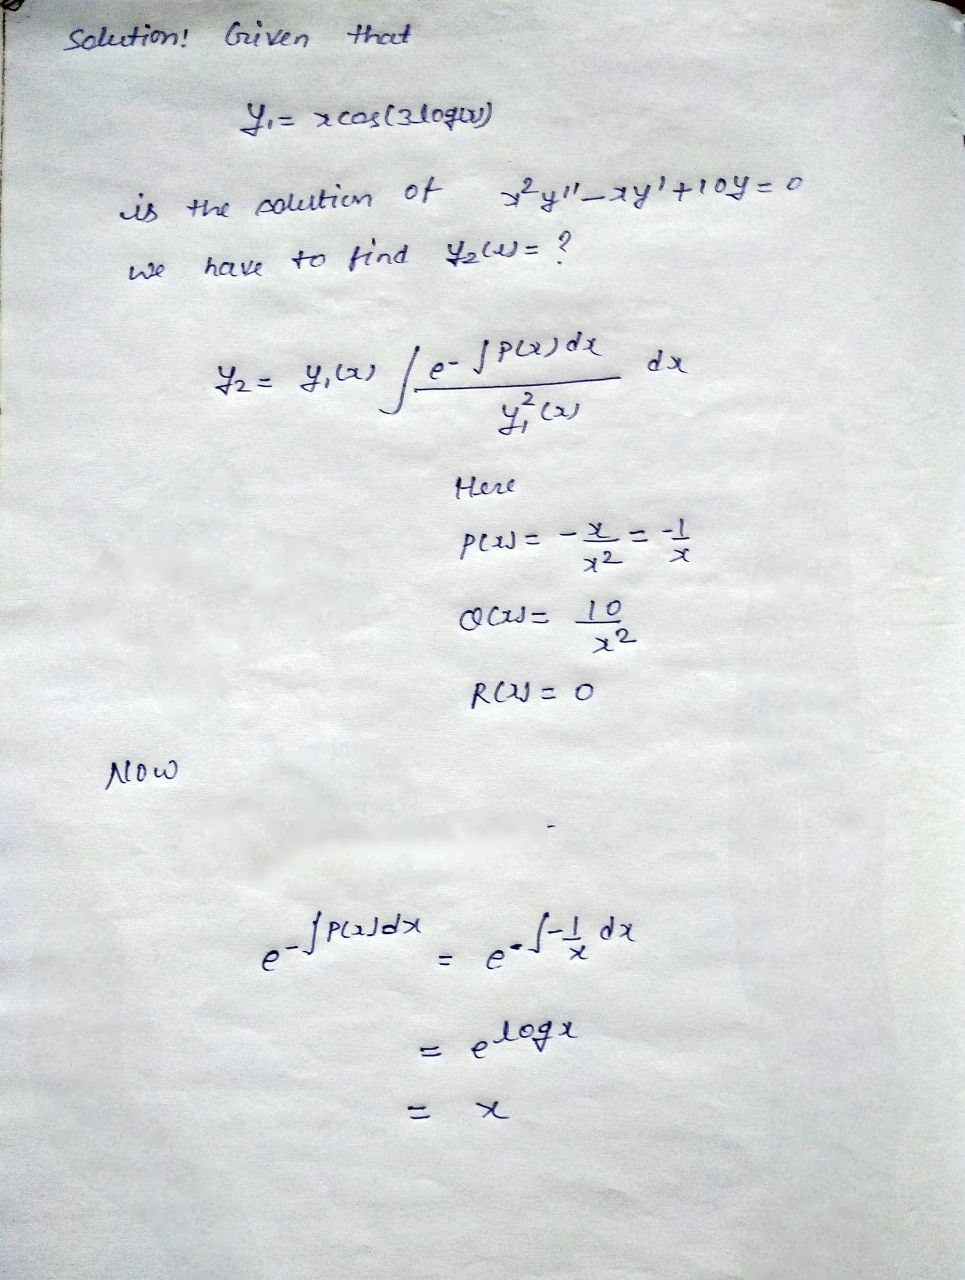 Solution! Given that
y₁ = x cos(3log(x))
is the solution of x²y'' - xy' + 10y = 0
we have to find y₂(x) = ?
y₂ = y₁(x) ∫ e^(-∫P(x)dx) / y₁²(x) dx
Here
P(x) = -x/x² = -1/x
Q(x) = 10/x²
R(x) = 0
Now
e^(-∫P(x)dx) = e^(-∫-1/x dx)
= e^(log x)
= x